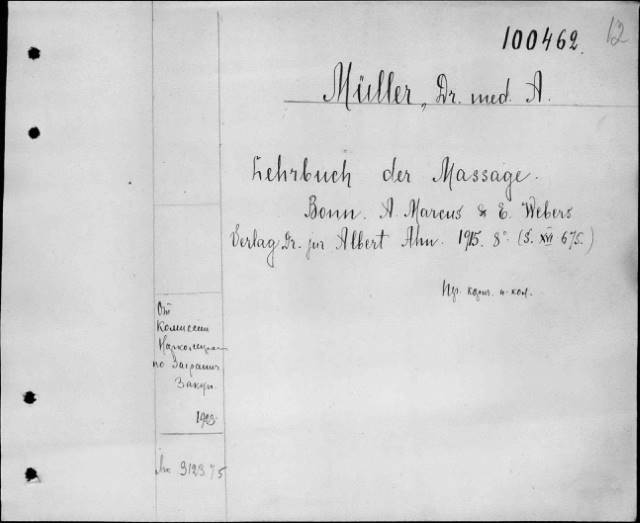 100462.
12
Müller, Dr. med. A.
Lehrbuch der Massage.
Bonn. A. Marcus & E. Webers
Verlag Dr. jur Albert Ahn. 1915. 8° (S. XVI 675.)
От
Комиссии
по Загранич.
Закуп.
1923
№ 3123.75